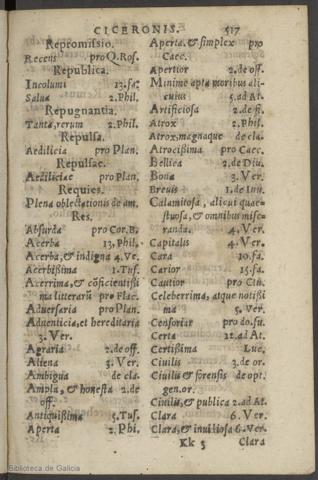 CICERONIS. 517
Repromissio.
Recens pro Q. Ros.
Republica.
Incolumi 13. fa.
Salua 2. Phil.
Repugnantia.
Tanta, rerum 2. Phil.
Repulsa.
Aedilicia pro Plan.
Repulsae.
Aediliciae pro Plan.
Requies.
Plena oblectationis de am.
Res.
Absurda pro Cor. B.
Acerba 13, Phil.
Acerba, & indigna 4. Ve.
Acerbißima 1. Tus.
Acerrima, & cōficientißi
ma litterarū pro Flac.
Aduersaria pro Plan.
Aduenticia, et hereditaria
3. Ver.
Agraria 2. de off.
Aliena 3. Ver.
Ambigua de cla.
Ampla, & honesta 2. de
off.
Antiquißima 5. Tus.
Aperta 2. Phi.
Aperta. & simplex pro
Caec.
Apertior 2. de off.
Minime apta moribus ali-
cuius 5. ad At.
Artificiosa 2. de fi.
Atrox 2. Phil.
Atrox, magnaque de cla.
Atrocißima pro Caec.
Bellica 2. de Diu.
Bona 3. Ver.
Breuis 1. de Inu.
Calamitosa, alicui quae-
stuosa, & omnibus mise-
randa. 4. Ver.
Capitalis 4. Ver.
Cara 10. fa.
Carior 15. fa.
Cautior pro Clu.
Celeberrima, atque notißi
ma 5. Ver.
Censoria pro do. su.
Certa 12. ad At.
Certißima Luc.
Ciuilis 3. de Or.
Ciuilis & forensis de opt.
gen. or.
Ciuilis, & publica 2. ad At.
Clara 6. Ver.
Clara, & inuidiosa 6. Ver.
Kk 3 Clara
Biblioteca de Galicia